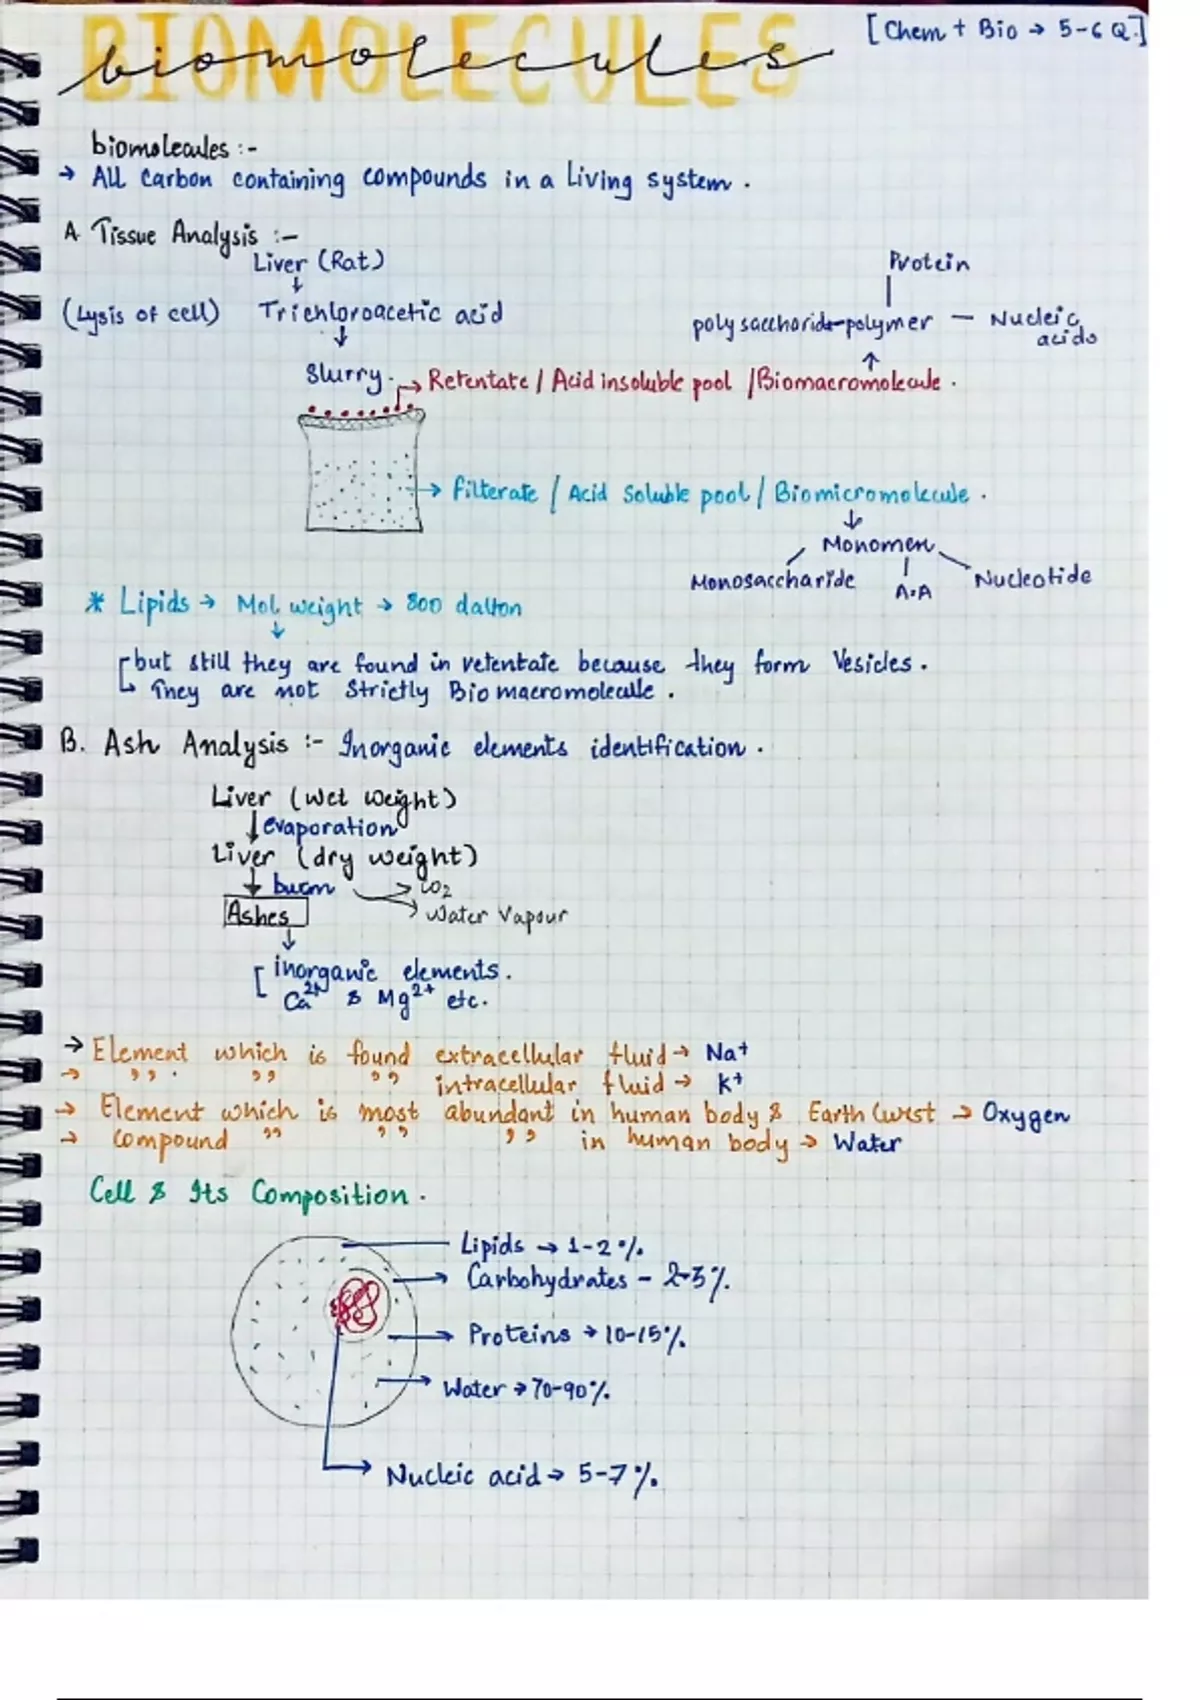 [Chem + Bio → 5-6 Q.]
BIOMOLECULES
biomolecules
biomolecules :-
→ All Carbon containing compounds in a Living system .
A Tissue Analysis :-
Liver (Rat)
↓
(Lysis of cell) Trichloroacetic acid
↓
Slurry.
Protein
polysaccharide-polymer — Nucleic acids
↑
→ Retentate / Acid insoluble pool / Biomacromolecule .
→ filterate / Acid Soluble pool / Biomicromolecule .
↓
Monomer
Monosaccharide A.A Nucleotide
* Lipids → Mol. weight → 800 dalton
↓
but still they are found in retentate because they form Vesicles .
↳ They are not Strictly Bio macromolecule .
B. Ash Analysis :- Inorganic elements identification .
Liver (wet weight)
↓ evaporation
Liver (dry weight)
↓ burn → CO2
→ Water Vapour
Ashes
↓
[ inorganic elements .
Ca2+ & Mg2+ etc.
→ Element which is found extracellular fluid → Na+
→ ,, . ,, ,, intracellular fluid → K+
→ Element which is most abundant in human body & Earth Cwst → Oxygen
→ Compound ,, ,, ,, in human body → Water
Cell & Its Composition .
Lipids → 1-2 %.
Carbohydrates - 2-3 %.
Proteins → 10-15 %.
Water → 70-90 %.
Nucleic acid → 5-7 %.